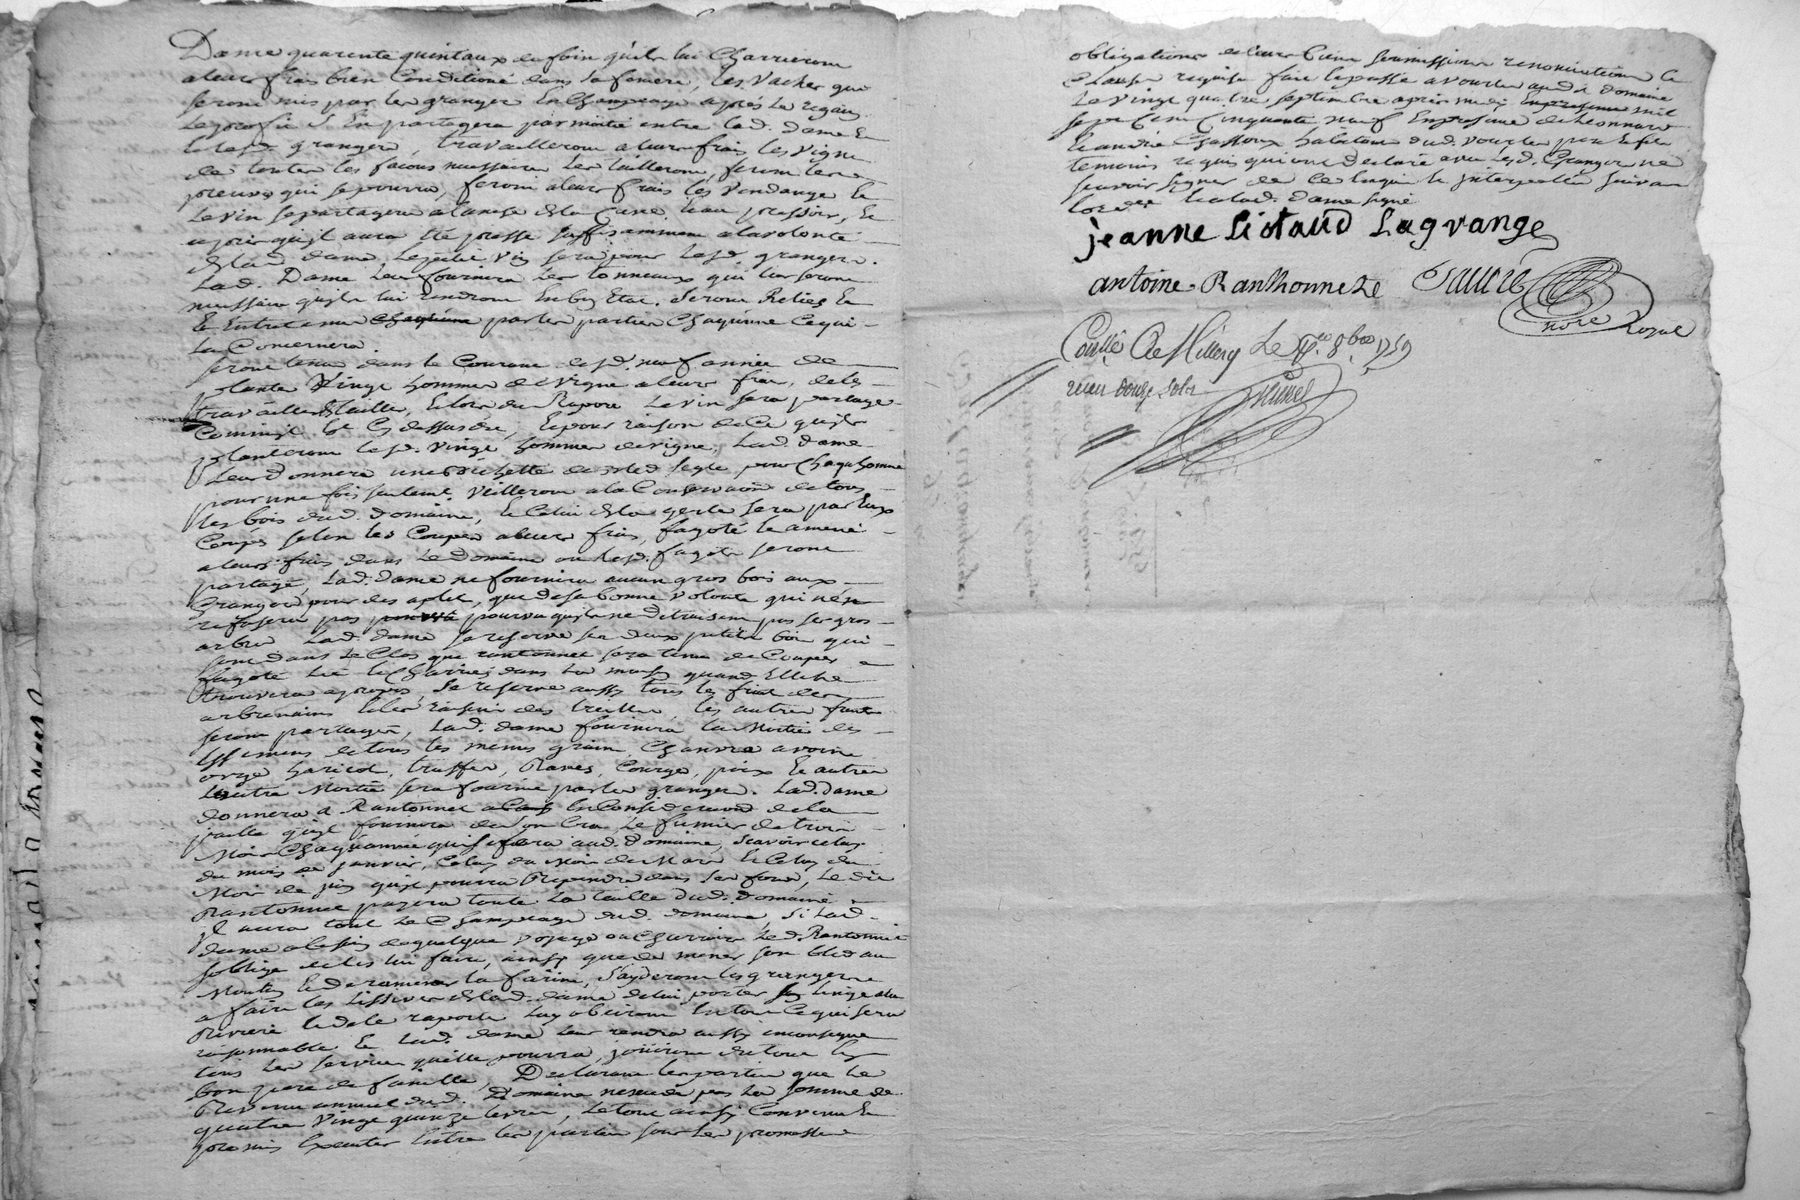 Dame quarente quintaux de foin quils lui Charrieront
a leur frais bien Conditioné dans sa feniere, les Vaches qui
seront mis par les granger En Champeage après Le regain
Le profit S En partagera par moitié entre lad. dame Et
granger, travailleront a leur frais les vigne
de toutes les facons nessaire Les tailleront, feront les
preuves qui se pourra, feront a leur frais les Vendange Et
Le vin se partagera a l'anse de la Cuve, Et au pressoir, Et
après quil aura Eté pressé suffisamment a la volonté
de lad. dame Le petit vin sera pour Lesd. granger.
Lad. Dame leur fournira Les tonneaux qui leur seront
nessaire quils lui rendront En bon Etat. Seront Reliés Et
Entretenu par les parties Chaqu'une Ce qui
La Concernera.
Seront tenu dans le Courant desd. neuf année de
planter Vingt hommes de vigne a leur frais, de les
travailler & tailler, Et lors du Rapport Le vin sera partagé
Comme il Est Cy dessus dit, Et pour raison de Ce quils
planteront lesd. vingt hommes de vigne, Lad. dame
Leur donnera une Bichette de bled Segle pour Chaqu'homme
pour une fois seulemt. Veilleront a la Conservaon de tous
les bois dud. domaine, Et Celui de la gerle sera par Eux
Coupé selon les Coupes a leur frais, fagoté Et amené
a leurs frais dans Le Domaine ou Lesd. fagots seront
partagé, Lad. dame ne fournira aucun gros bois aux
Granger pour des aplet, que de sa bonne volonté qui n'en
refusera pas pourvu quils ne detruisent pas les gros
arbre Lad. dame se reserve les deux petits bois qui
sont dans Le Clos que rantonnet sera tenu de Couper
fagoté Lié Et Charrié dans La maison quand Elle le
trouvera apropos, Se reserve aussy tous les fruit des
arbres nains Et les raisins des treilles, les autres fruits
seront partagés, Lad. dame fournira La Moitié des
Semens de tous les menus grain, Chanvre avoine
orge haricot, truffes, Raves, Courge, poix Et autres
L'autre Moitié sera fournie par les granger. Lad. Dame
donnera a Rantonnet En Consideraon de la
paille quil fournira de Son Cru Le fumier de trois
Mois Chaqu'année qui se fera aud. domaine, scavoir Celuy
du mois de janvier, Celuy du Mois de Mars Et Celuy du
Mois de juin quil pourra Repandre dans ses fond, Le dit
Rantonnet payera toute La taille dud. domaine
Il aura tout Le Champeage dud. domaine, Si Lad.
dame a besoin de quelque voyage ou Charroirs Led. Rantonnet
s'oblige de les lui faire, ainsy que de mener son bled au
Moulin Et de ramener la farine, S'ayderont les granger
a faire les Lissives de lad. dame de lui porter son Linge a la
Riviere Et de le raporter Luy obeiront En tout Ce qui sera
raisonnable Et Lad. dame leur rendra aussi
tous les services qu'elle pourra, joüiront du tout En
bon pere de famille, Declarant les parties que Le
Revenu annuel dud. Domaine n'excede pas La somme de
quatre Vingt quinze Livres, Le tout ainsy Convenu Et
promis Executer Entre les parties sous Les promesses
obligations de leurs biens soumissions renonciations Et
Clauses requises fait Et passé a vourles aud. domaine
Le vingt quatre septembre après midy mil
sept Cent Cinquante neuf En presence de Leonnard
Et andré Chassoux habitant dud. vourles pere Et fils
temoins requis qui ont declaré avec Lesd. Granger ne
scavoir signer de Ce Enquis Et Interpellés suivant
Et a lad. dame signé
jeanne Liotaud Lagrange
antoine Ranthonnete
nore Royal
Conllé A Millery Le 8bre 1759
receu douze sols